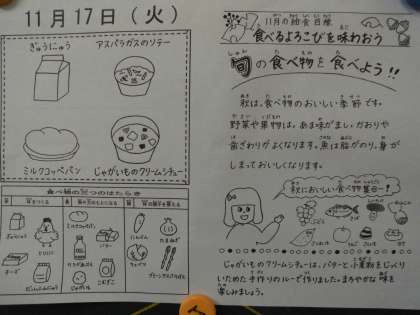 11月17日（火）
ぎゅうにゅう
アスパラガスのソテー
ミルクコッペパン
じゃがいものクリームシチュー
食べ物の三つのはたらき
ぎゅうにゅう
とりにく
チーズ
ミルクコッペパン
バター
じゃがいも
こむぎこ
にんじん
たまねぎ
11月の給食目標
食べるよろこびを味わおう
旬の食べ物を食べよう!!
秋は、食べ物のおいしい季節です。
野菜や果物は、あま味がまし、かおりや
歯ざわりがよくなります。魚は脂がのり、身が
しまっておいしくなります。
秋においしい食べ物集合!
じゃがいものクリームシチューは、バターと小麦粉をじっくり
いためた手作りのルーで作りました。まろやかな味を
楽しみましょう。